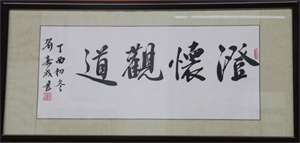 澄懷觀道
丁酉初冬